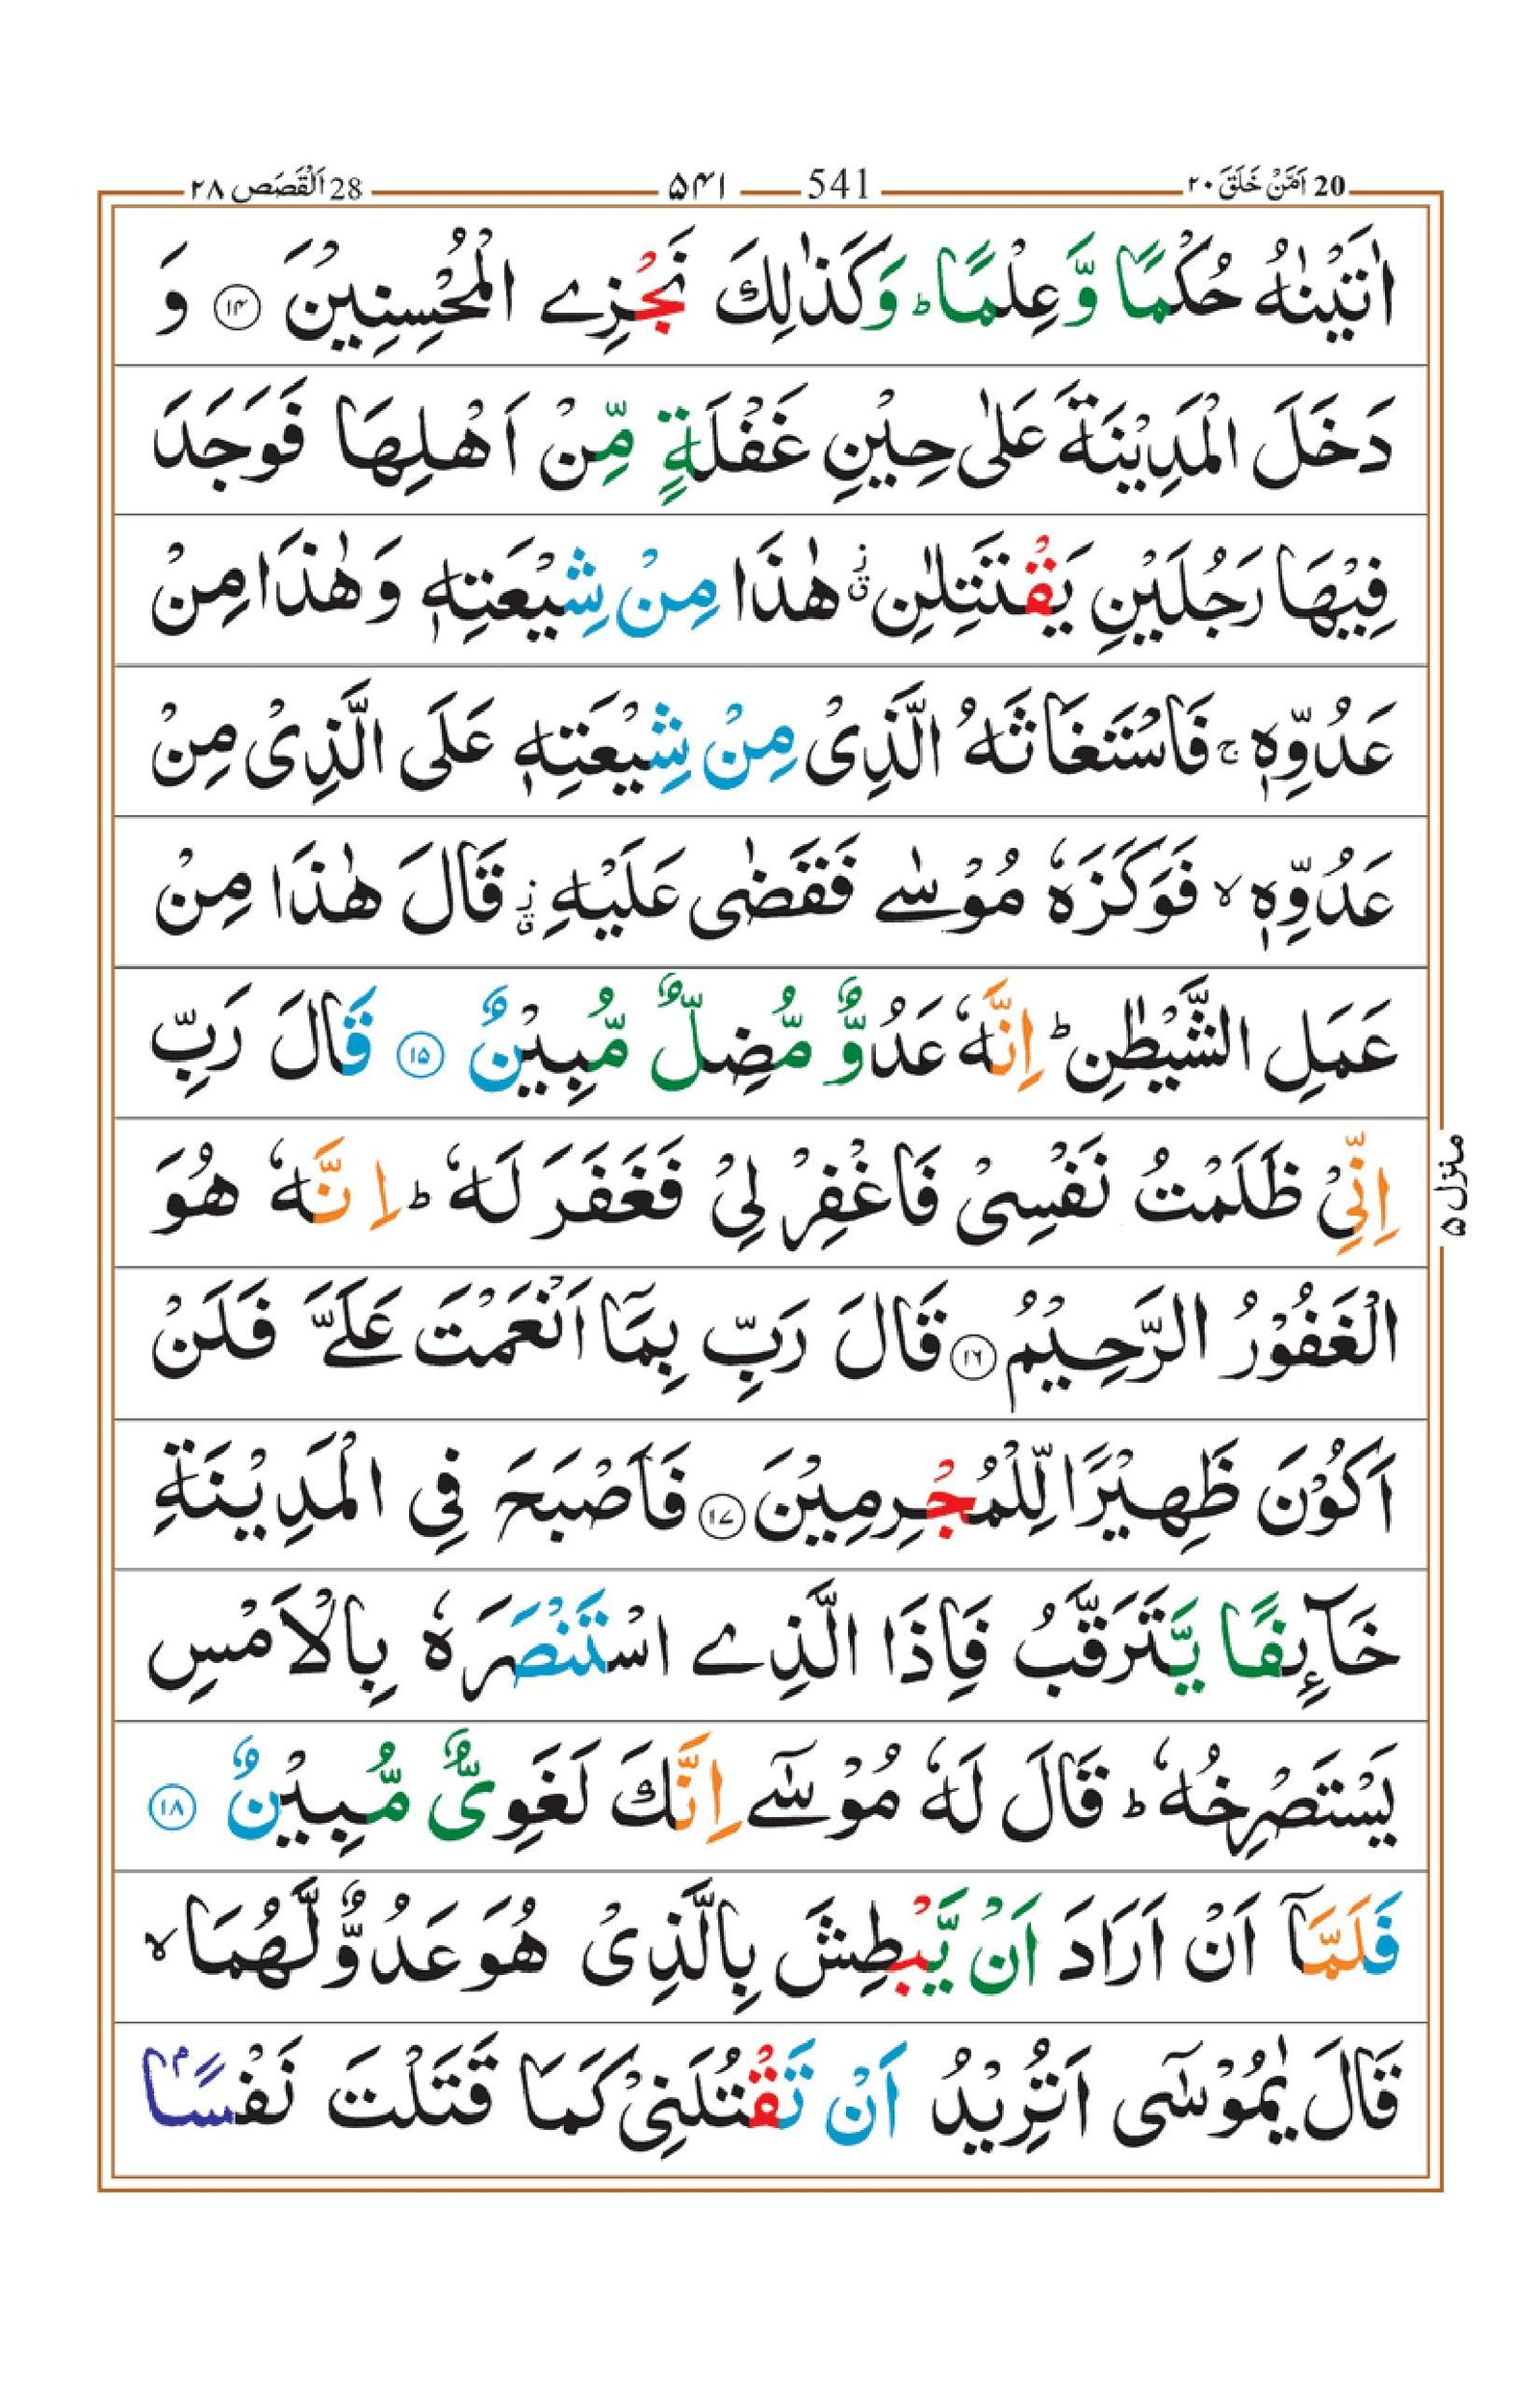 20 اَمَّنْ خَلَقَ ۲۰ 541 ۵۴۱ 28 اَلْقَصَص ۲۸
اٰتَيْنٰهُ حُكْمًا وَّعِلْمًا ؕ وَكَذٰلِكَ نَجْزِے الْمُحْسِنِيْنَ ۱۴ وَ
دَخَلَ الْمَدِيْنَةَ عَلٰى حِيْنِ غَفْلَةٍ مِّنْ اَهْلِهَا فَوَجَدَ
فِيْهَا رَجُلَيْنِ يَقْتَتِلٰنِ ؗ هٰذَا مِنْ شِيْعَتِهٖ وَهٰذَا مِنْ
عَدُوِّهٖ ۚ فَاسْتَغَاثَهُ الَّذِىْ مِنْ شِيْعَتِهٖ عَلَى الَّذِىْ مِنْ
عَدُوِّهٖ ۙ فَوَكَزَهٗ مُوْسٰے فَقَضٰى عَلَيْهِ ؗ قَالَ هٰذَا مِنْ
عَمَلِ الشَّيْطٰنِ ؕ اِنَّهٗ عَدُوٌّ مُّضِلٌّ مُّبِيْنٌ ۱۵ قَالَ رَبِّ
اِنِّىْ ظَلَمْتُ نَفْسِىْ فَاغْفِرْ لِىْ فَغَفَرَ لَهٗ ؕ اِنَّهٗ هُوَ
الْغَفُوْرُ الرَّحِيْمُ ۱۶ قَالَ رَبِّ بِمَاۤ اَنْعَمْتَ عَلَىَّ فَلَنْ
اَكُوْنَ ظَهِيْرًا لِّلْمُجْرِمِيْنَ ۱۷ فَاَصْبَحَ فِى الْمَدِيْنَةِ
خَآئِفًا يَّتَرَقَّبُ فَاِذَا الَّذِے اسْتَنْصَرَهٗ بِالْاَمْسِ
يَسْتَصْرِخُهٗ ؕ قَالَ لَهٗ مُوْسٰٓے اِنَّكَ لَغَوِىٌّ مُّبِيْنٌ ۱۸
فَلَمَّاۤ اَنْ اَرَادَ اَنْ يَّبْطِشَ بِالَّذِىْ هُوَ عَدُوٌّ لَّهُمَا ۙ
قَالَ يٰمُوْسٰٓى اَتُرِيْدُ اَنْ تَقْتُلَنِىْ كَمَا قَتَلْتَ نَفْسًاۢ
منزل ۵